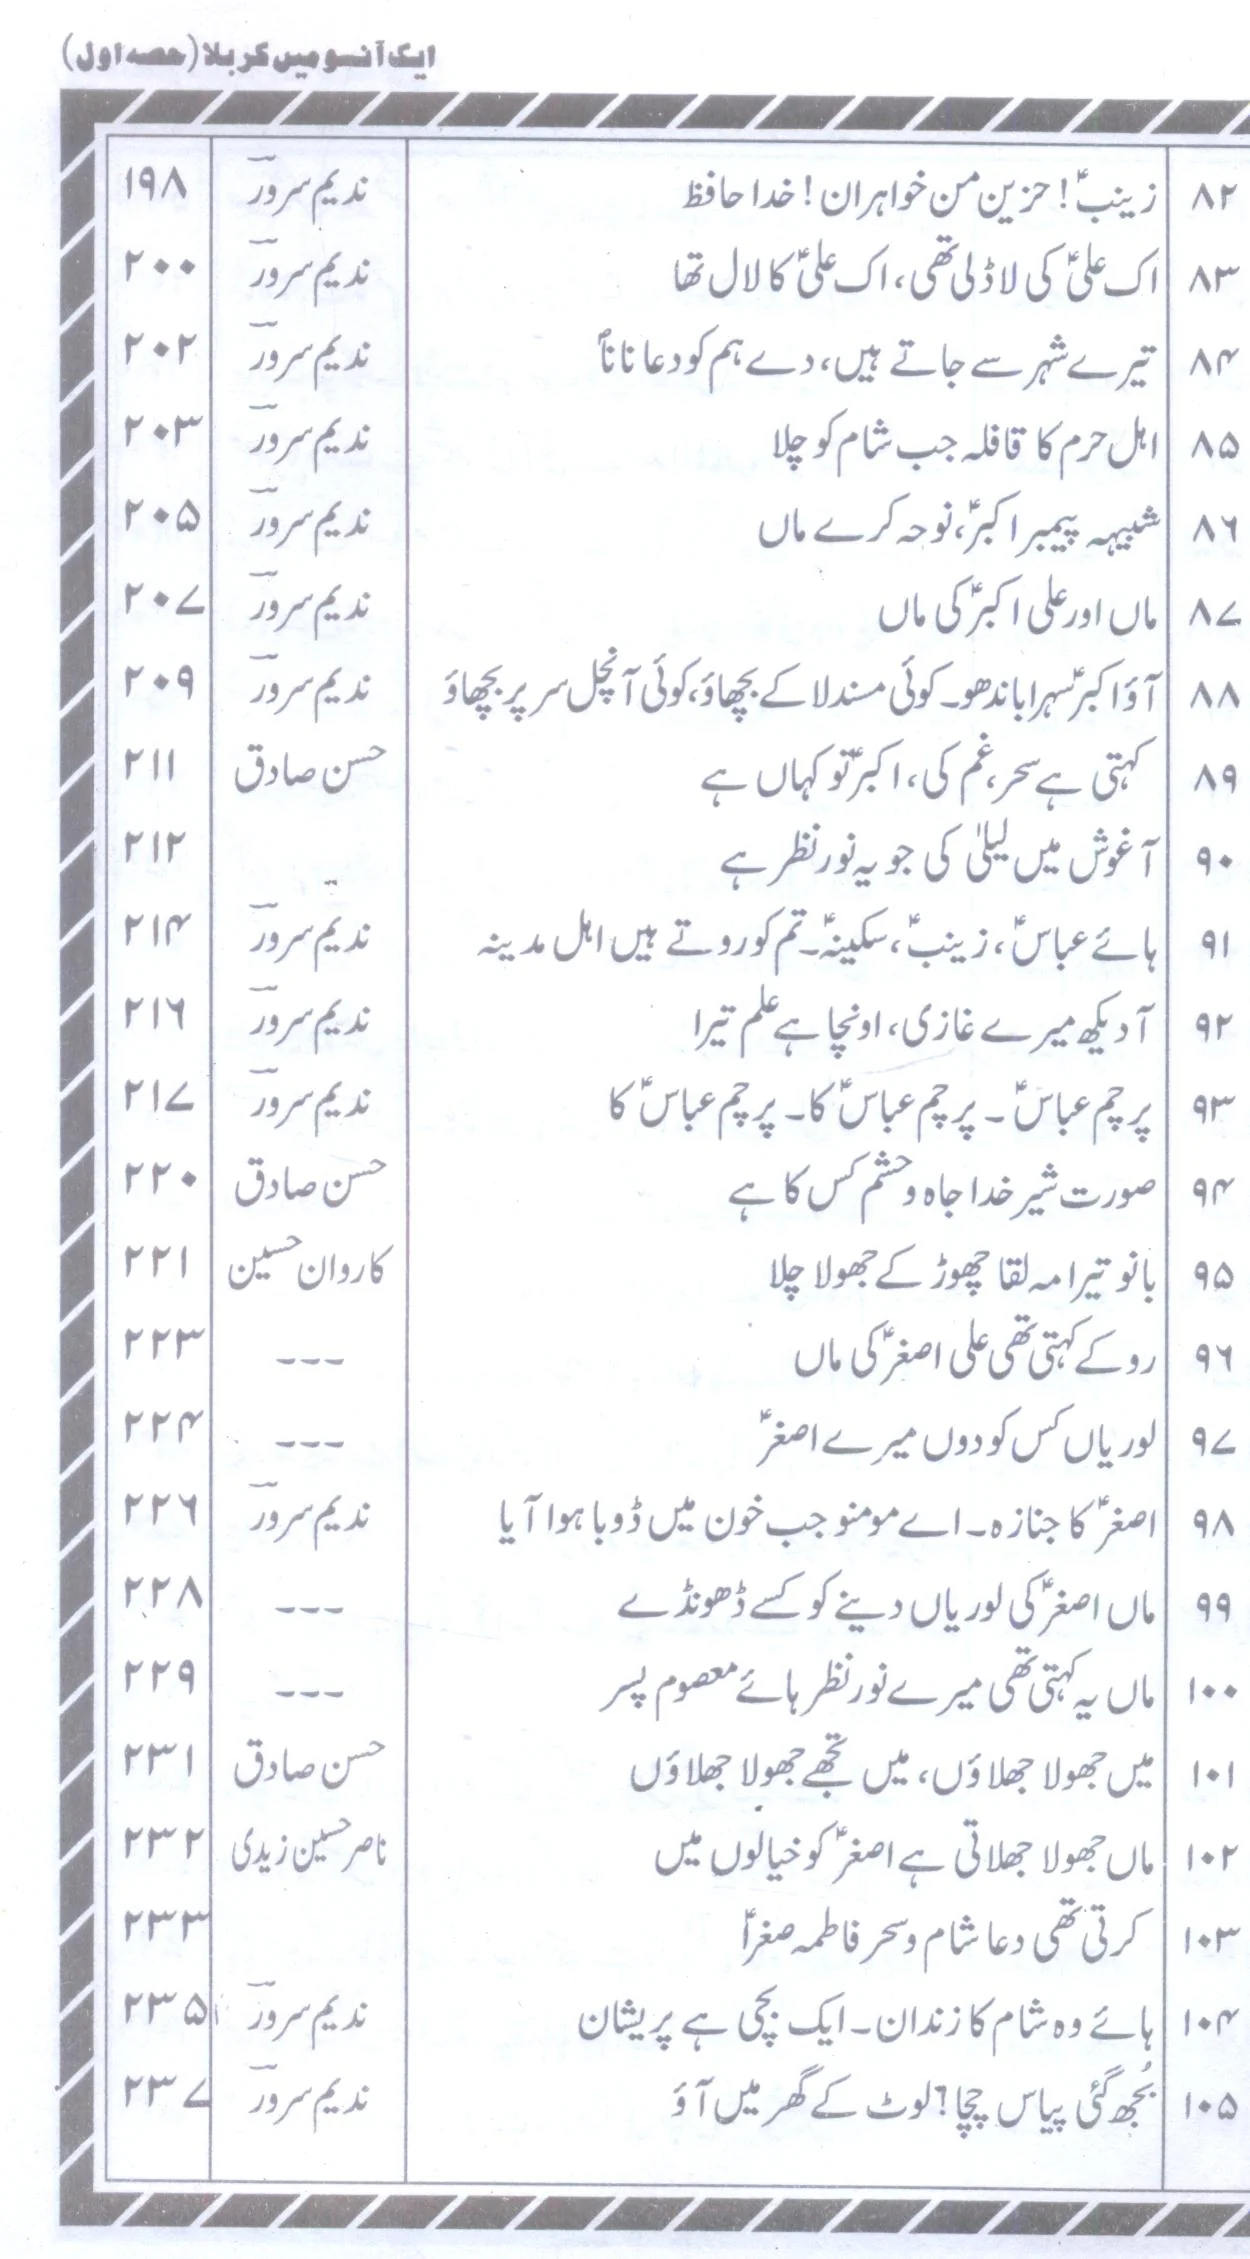 ایک آنسو میں کربلا (حصہ اول)
۸۲ زینبؑ! حزین من خواہران! خدا حافظ ندیم سرور ۱۹۸
۸۳ اک علیؑ کی لاڈلی تھی، اک علیؑ کا لال تھا ندیم سرور ۲۰۰
۸۴ تیرے شہر سے جاتے ہیں، دے ہم کو دعا ناناؐ ندیم سرور ۲۰۲
۸۵ اہل حرم کا قافلہ جب شام کو چلا ندیم سرور ۲۰۳
۸۶ شبیہہ پیمبر اکبرؑ، نوحہ کرے ماں ندیم سرور ۲۰۵
۸۷ ماں اور علی اکبرؑ کی ماں ندیم سرور ۲۰۷
۸۸ آؤ اکبرؑ سہرا باندھو۔ کوئی مسند لا کے بچھاؤ، کوئی آنچل سر پر بچھاؤ ندیم سرور ۲۰۹
۸۹ کہتی ہے سحر، غم کی، اکبرؑ تو کہاں ہے حسن صادق ۲۱۱
۹۰ آغوش میں لیلیٰ کی جو یہ نور نظر ہے ۲۱۲
۹۱ ہائے عباسؑ، زینبؑ، سکینہؑ۔ تم کو روتے ہیں اہل مدینہ ندیم سرور ۲۱۴
۹۲ آ دیکھ میرے غازی، اونچا ہے علم تیرا ندیم سرور ۲۱۶
۹۳ پرچم عباسؑ ۔ پرچم عباسؑ کا۔ پرچم عباسؑ کا ندیم سرور ۲۱۷
۹۴ صورت شیر خدا جاہ و حشم کس کا ہے حسن صادق ۲۲۰
۹۵ بانو تیرا مہ لقا چھوڑ کے جھولا چلا کاروان حسین ۲۲۱
۹۶ رو کے کہتی تھی علی اصغرؑ کی ماں --- ۲۲۳
۹۷ لوریاں کس کو دوں میرے اصغرؑ --- ۲۲۴
۹۸ اصغرؑ کا جنازہ۔ اے مومنو جب خون میں ڈوبا ہوا آیا ندیم سرور ۲۲۶
۹۹ ماں اصغرؑ کی لوریاں دینے کو کسے ڈھونڈے --- ۲۲۸
۱۰۰ ماں یہ کہتی تھی میرے نور نظر ہائے معصوم پسر --- ۲۲۹
۱۰۱ میں جھولا جھلاؤں، میں تجھے جھولا جھلاؤں حسن صادق ۲۳۱
۱۰۲ ماں جھولا جھلاتی ہے اصغرؑ کو خیالوں میں ناصر حسین زیدی ۲۳۲
۱۰۳ کرتی تھی دعا شام و سحر فاطمہ صغراؑ ۲۳۳
۱۰۴ ہائے وہ شام کا زندان۔ ایک بچی ہے پریشان ندیم سرور ۲۳۵
۱۰۵ بُجھ گئی پیاس چچا؟ لوٹ کے گھر میں آؤ ندیم سرور ۲۳۷